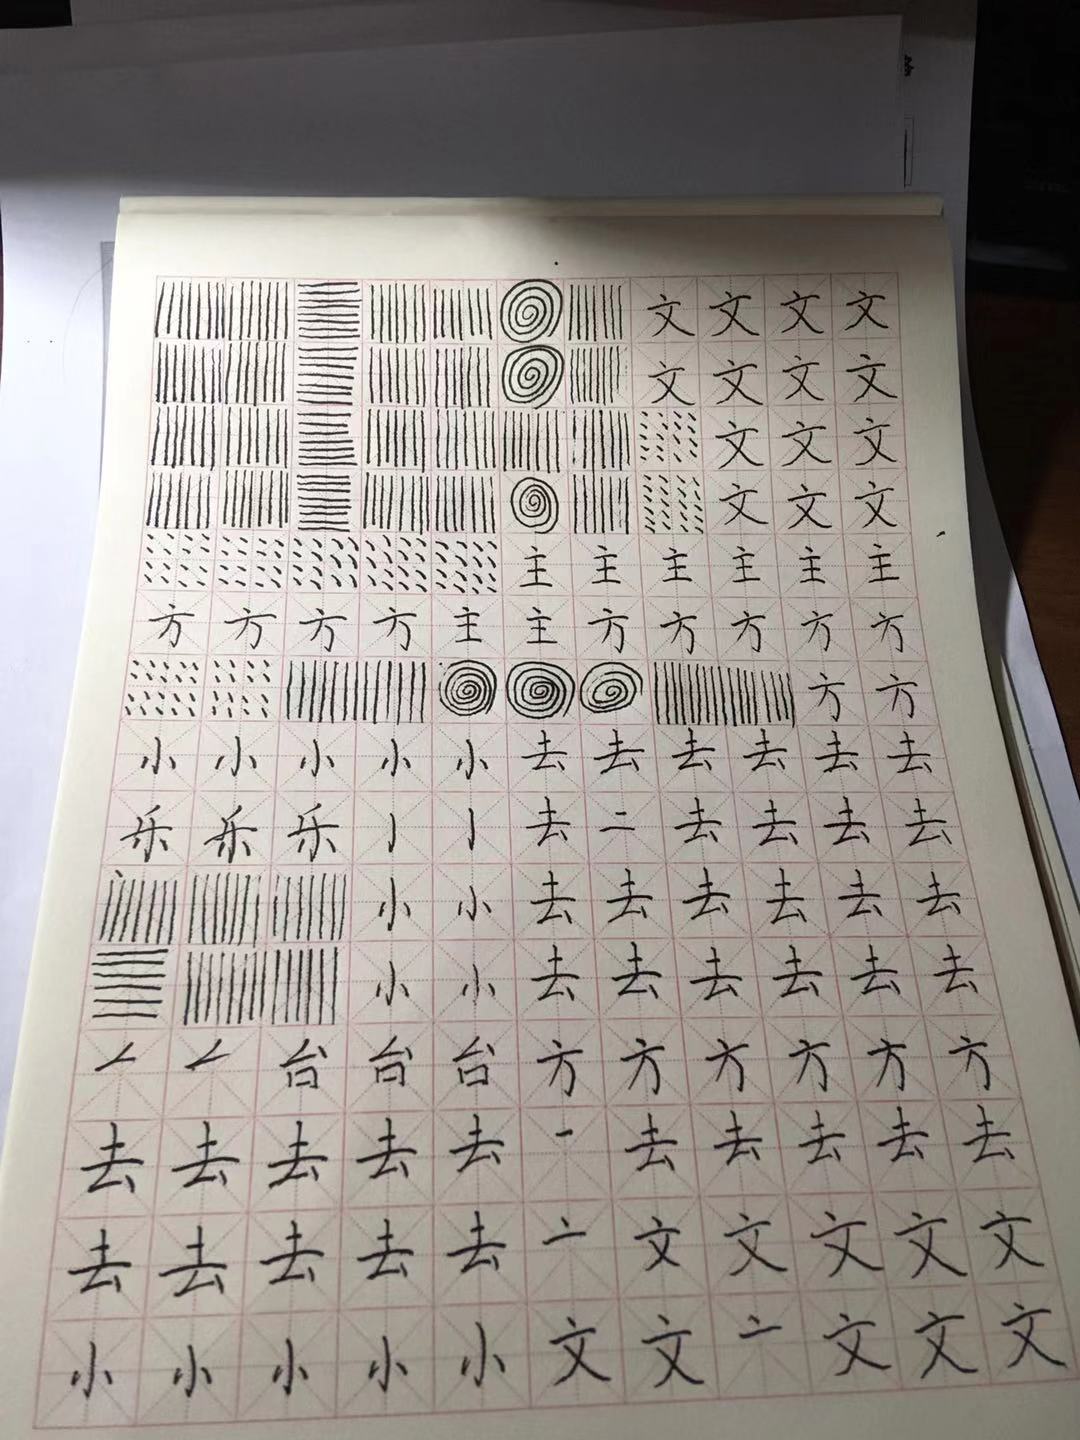 文文文文
文文文文
文文文
文文文
主主主主主主
方方方方主主方方方方方
方方
小小小小小去去去去去去
乐乐乐亅亅去二去去去去
小小去去去去去去
小小去去去去去去
𠂉𠂉台台台方方方方方方
去去去去去一去去去去去
去去去去去亠文文文文文
小小小小小文文亠文文文